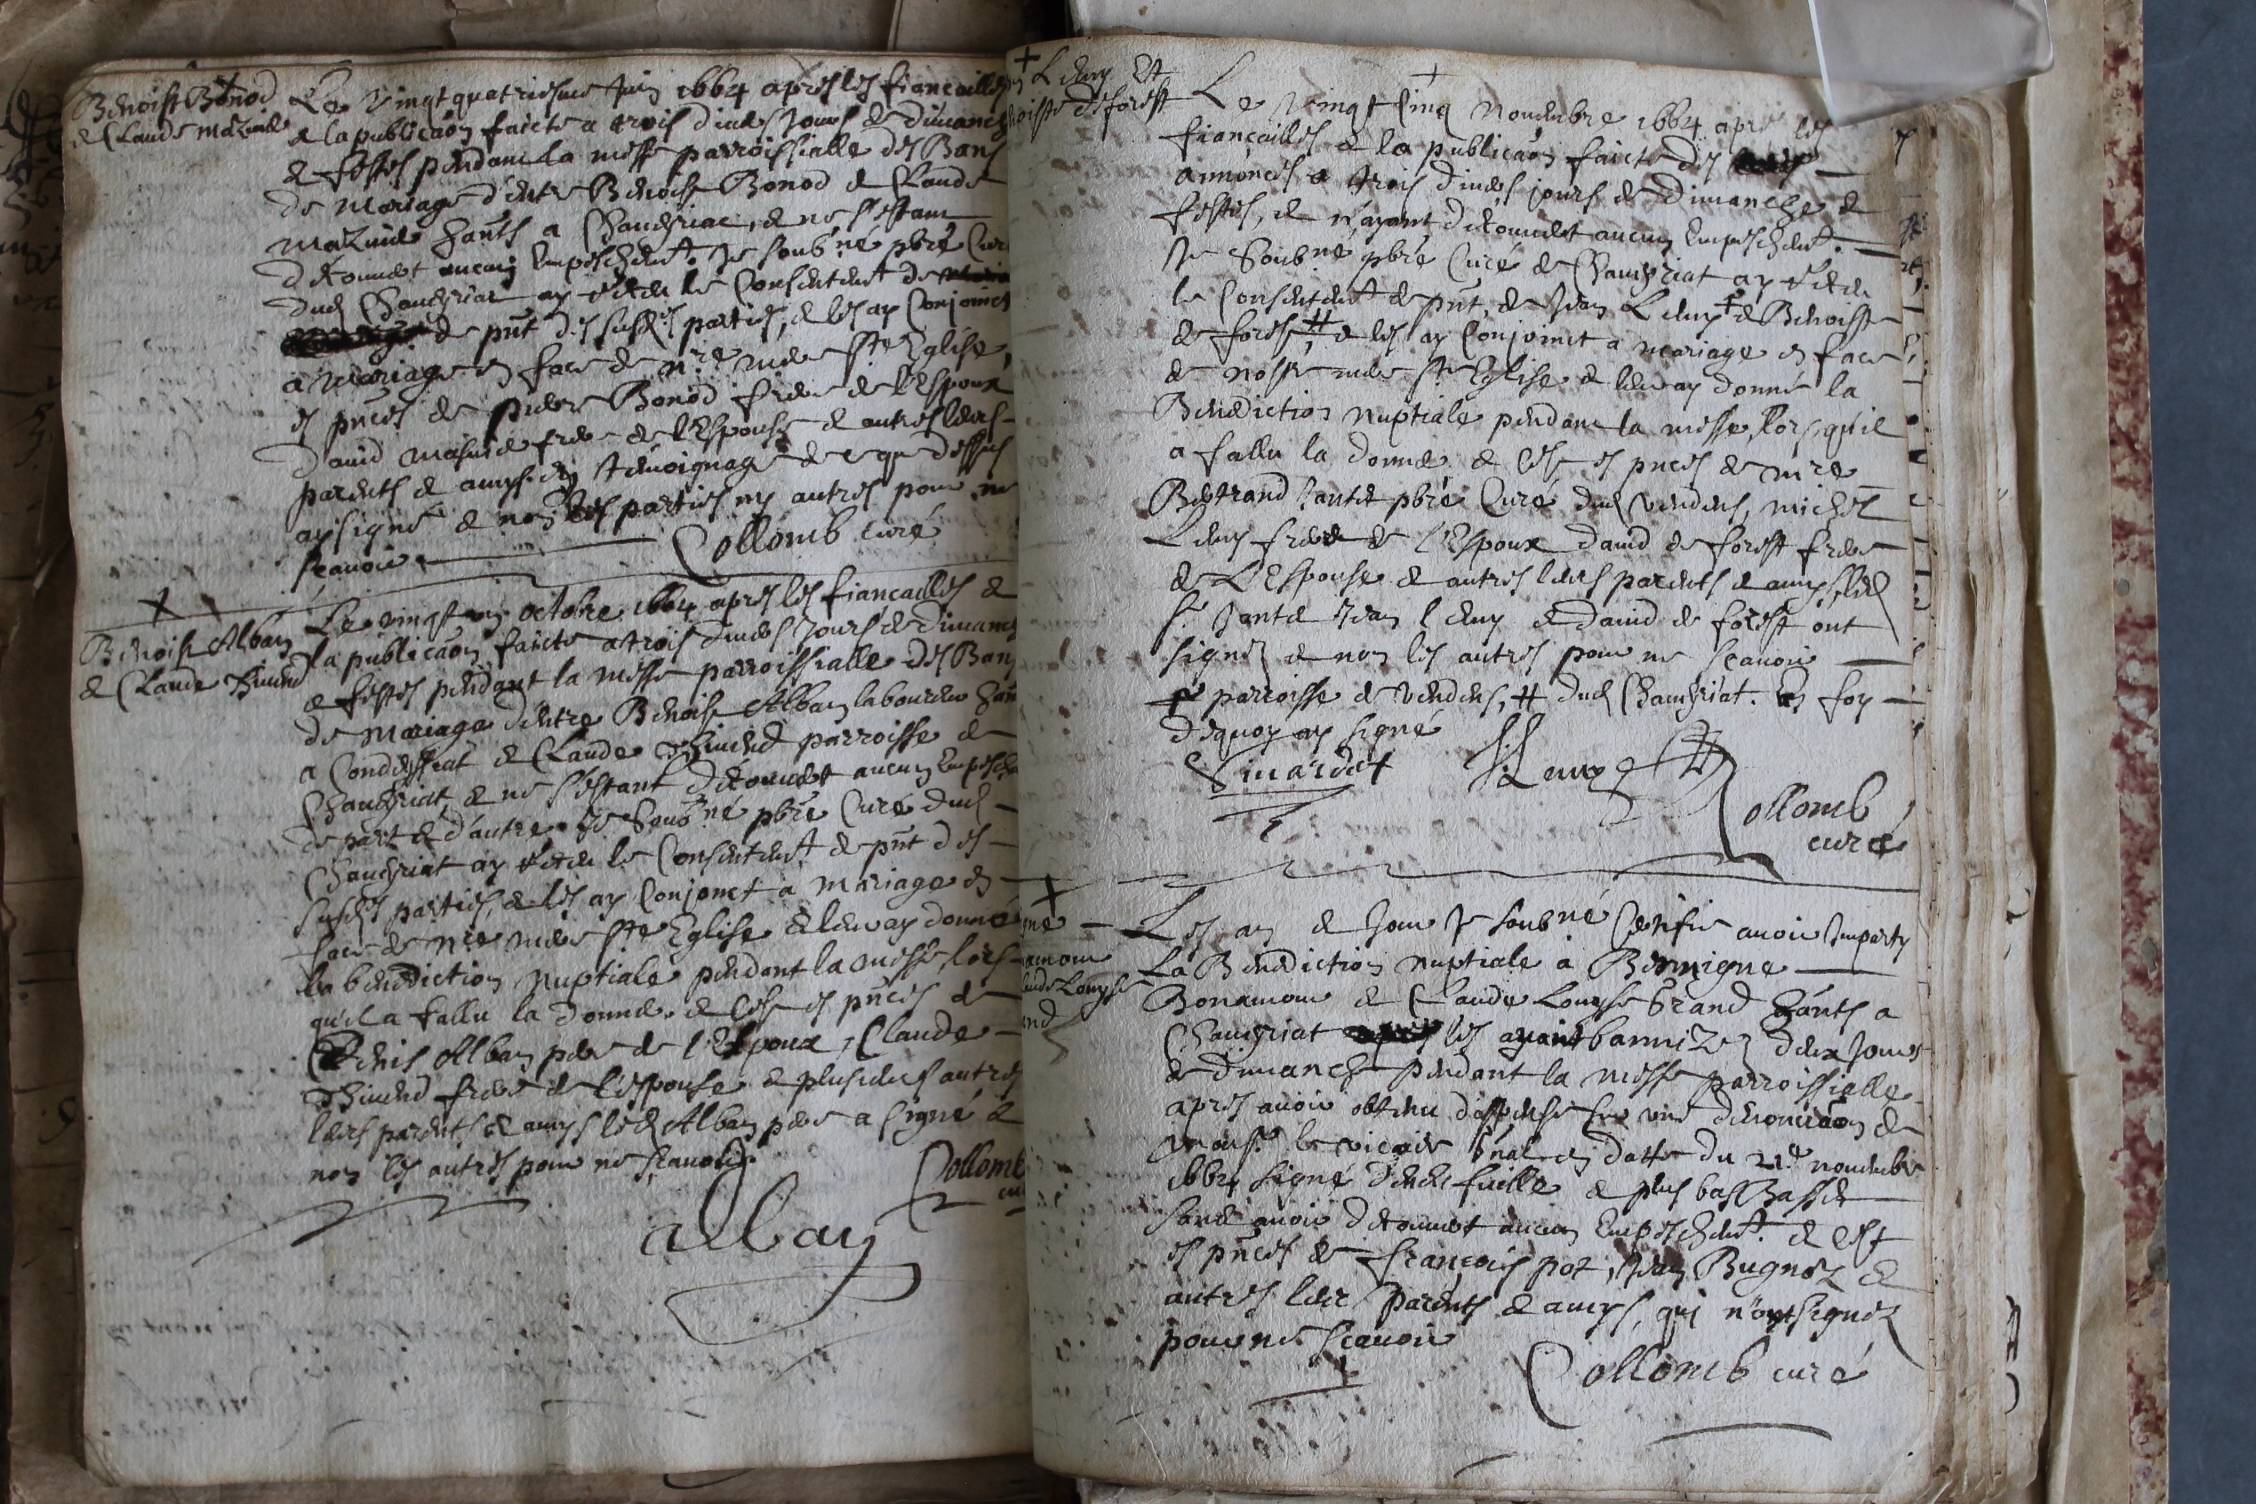 Benoist Bonod
& Claude Mazuide
Le vingt quatriesme Juin 1664 apres les fiancailles
& la publicaõn faicte a trois divers Jours de dimanche
& festes pendant la messe parroissialle des Bans
de mariage d'entre Benoist Bonod & Claude
Mazuide hãnts a Chaveyriac, & ne s'estant
découvert aucun Empeschemt. Je soubné pbrê Curé
dud Chaveyriat ay receu le Consentemt de
de pñt des susdes parties, & les ay Conjoinct
a mariage en face de nr̃e mere ste Eglise,
es pñces de pierre Bonod frere de l'Espoux
david masuide frere de l'Espouse & autres leurs
parents & amys. en temoignage de ce que dessus
ay signé & non les parties ny autres pour ne
scavoir
Collomb curé
Benoist Alban
& Claude
Le vingt un octobre 1664 apres les fiancailles &
la publicaõn faicte a trois divers Jours de dimanche
& festes pendant la messe parroissialle des Bans
de mariage d'entre Benoist Alban laboureur hãnt
a Condeyssiat & Claude parroisse de
Chaveyriat, & ne s'estant découvert aucun Empesche
de part & d'autre Je Soubné pbrê Curé dud
Chaveyriat ay receu le Consentemt de pñt des
susdes parties, & les ay Conjonct a mariage en
face de nr̃e mere ste Eglise & leur ay donné
la benediction nuptiale pendant la messe, lors
qu'il a fallu la donner & C'est es pñces de
Denis Alban pere de l'Espoux, Claude
frere de l'espouse & plusieurs autres
leurs parents & amys led Alban pere a signé &
non les autres pour ne scavoir.
Collomb
alban
Leuy Et
Benoiste de forest
Le vingt Cinq Novembre 1664 apres les
fiancailles & la publicaõn faicte des
annonces a trois divers jours de Dimanche &
festes, & n'ayant découvert aucun Empeschemt.
Je Soubné pbrê Curé de Chaveyriat ay receu
le Consentemt de pñt, de Jean Leuy + & Benoiste
de forest, # & les ay Conjoinct a mariage en face
de nostre mere ste Eglise & leur ay donné la
Benediction nuptiale pendant la messe, lorsquil
a fallu la donner & C'est es pñces de mre
Bertrand pbrê Curé dud vendens, michel
Leuy frere de l'Espoux david de forest frere
de L'Espouse & autres leurs parents & amys, led
sr. Jean leuy & david de forest ont
signez & non les autres pour ne scavoir
+ parroisse de vendens, # dud Chaveyriat. En foy
dequoy ay signé
Collomb
curé
Les an & Jour Je soubné Certifie avoir Imparty
La Benediction nuptiale à Bennigne
Bonamour & Claude Louyse Grand hãnts a
Chaveyriat les ayant bannizez deux Jours
de dimanche pendant la messe parroissialle
apres avoir obtenu dispense
monsr. le vicaire gñal en datte du 21e novembre
1664 signé & plus bas
sans avoir découvert aucun Empeschemt. & c'est
es pñces de francois pot, Jean Bugnoz &
autres leur parents & amys, qui n'ont signez
pour ne scavoir
Collomb curé